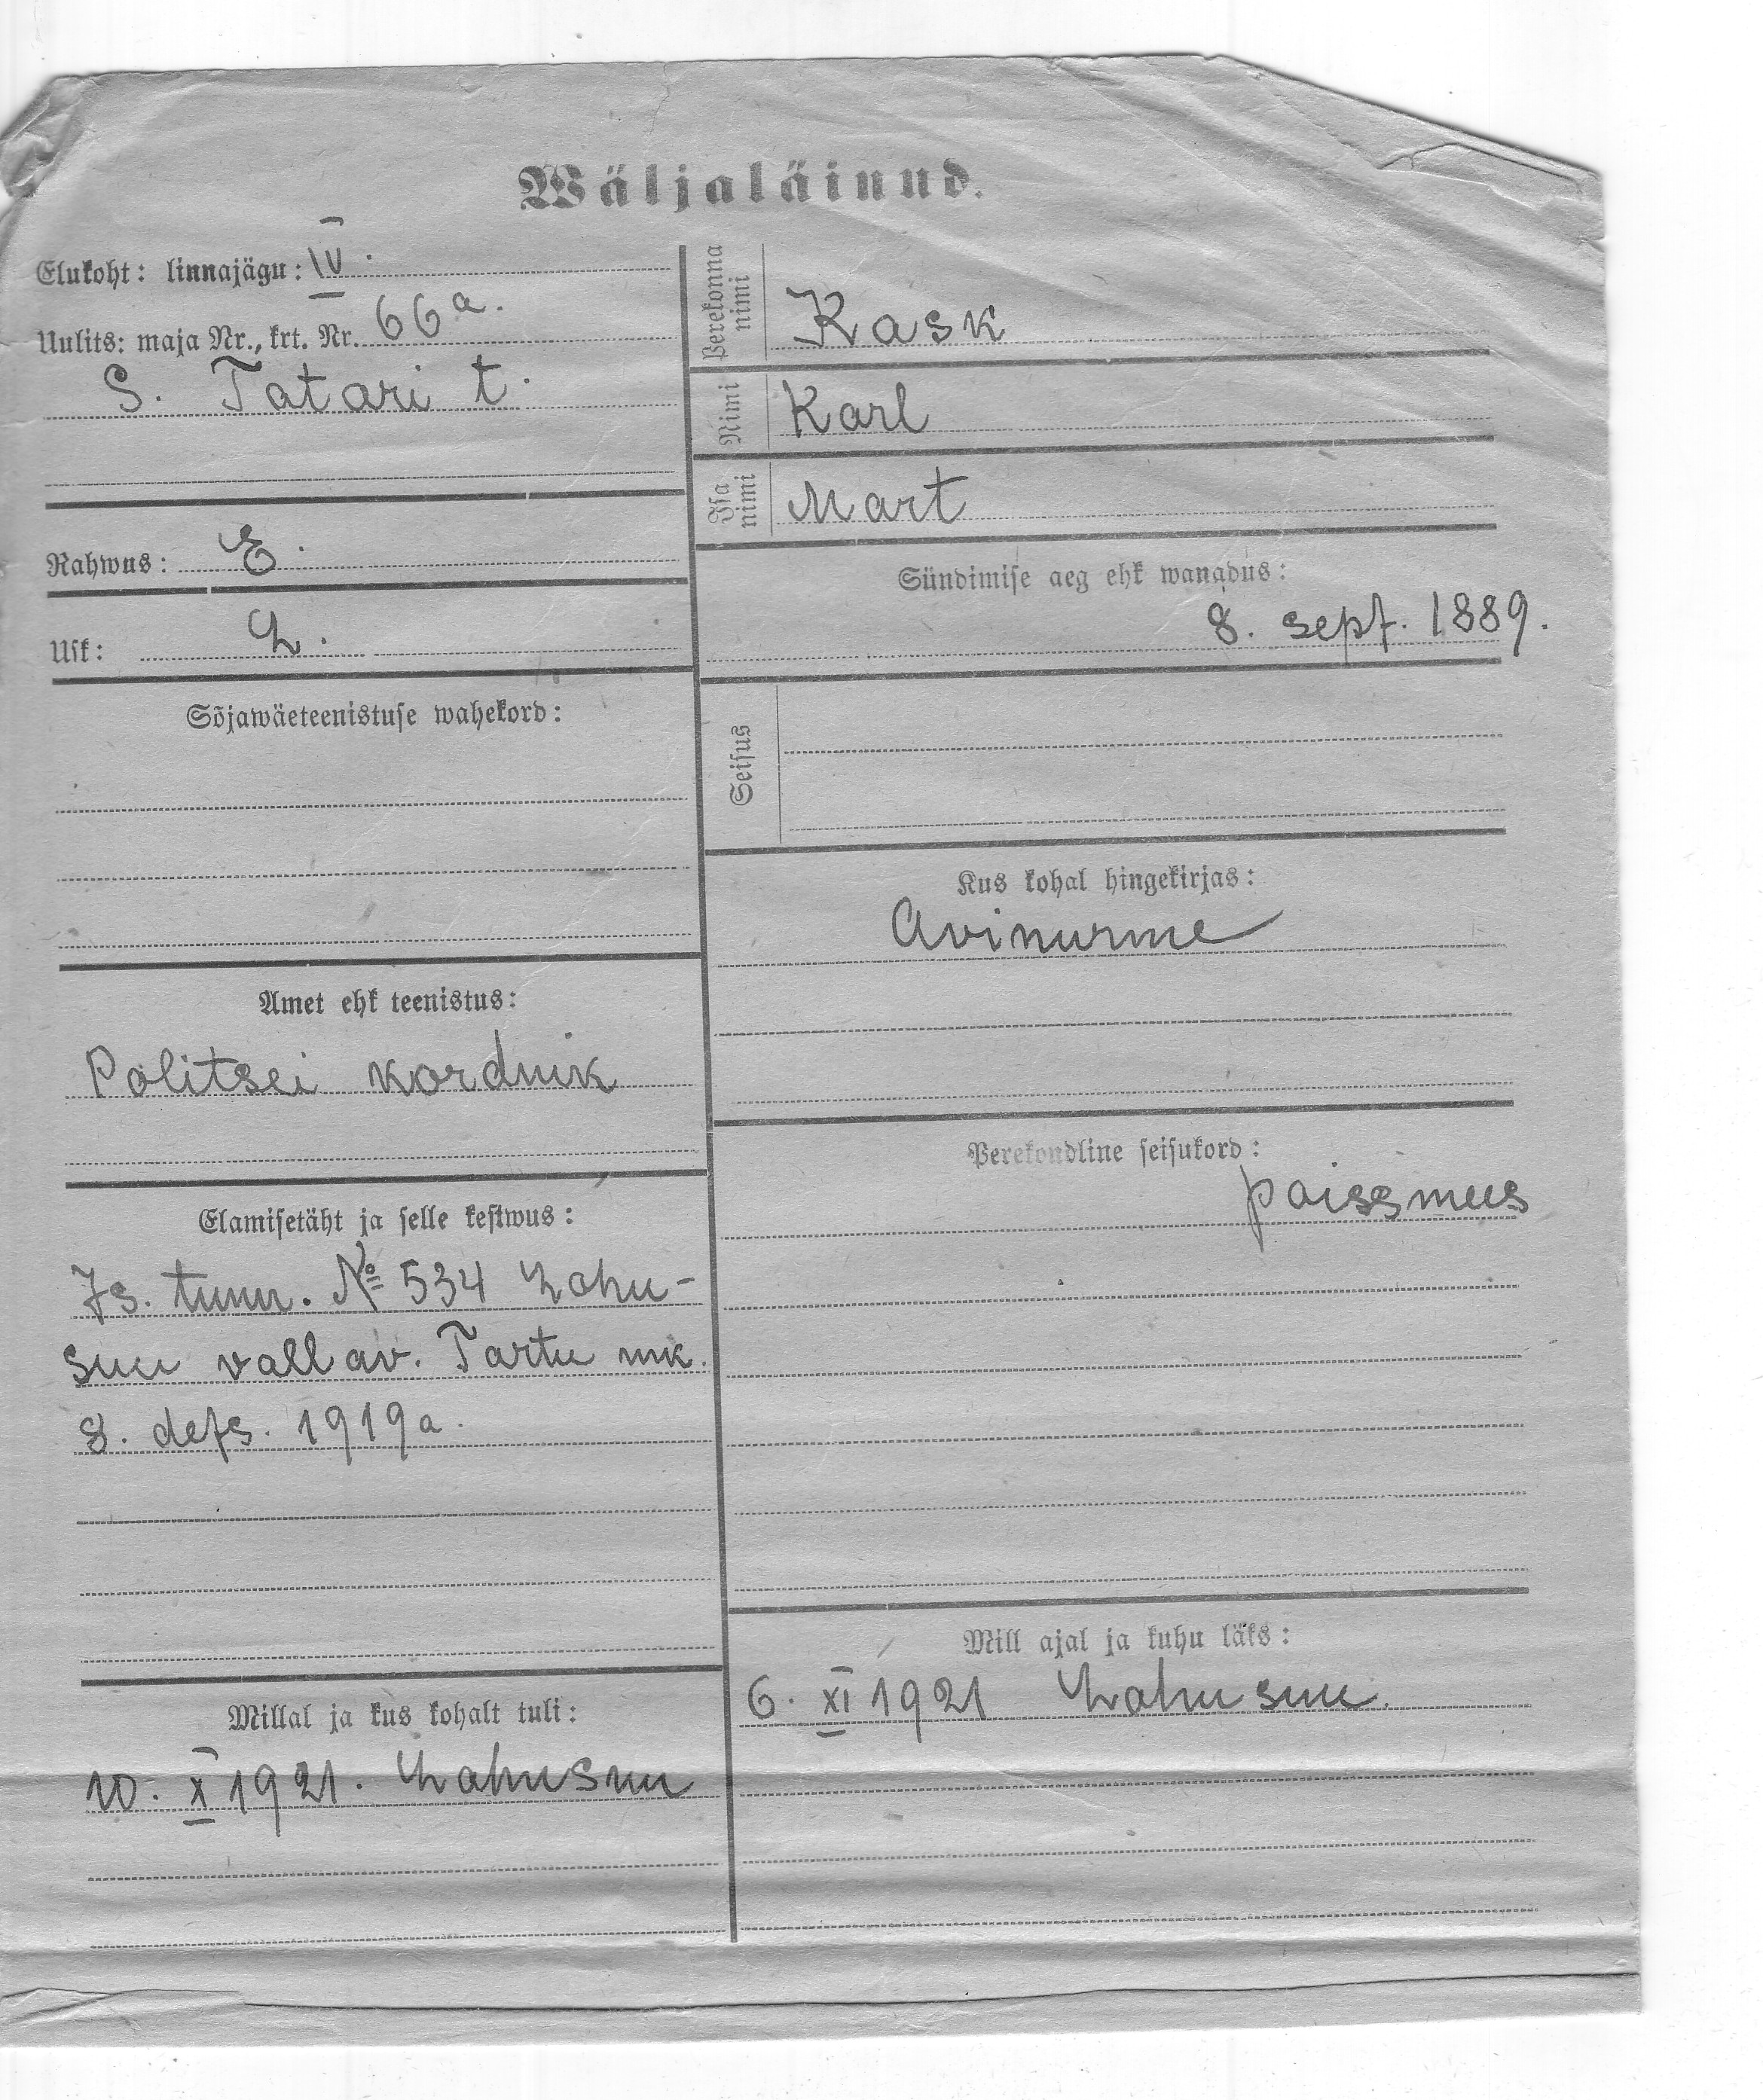 Wäljaläinud.
Elukoht: linnajägu: IV.
Uulits: maja Nr., krt. Nr. 66a.
S. Tatari t.
Rahwus: E.
Usk: L.
Sõjawäeteenistuse wahekord:
Amet ehk teenistus:
Politsei kordnik
Elamisetäht ja selle kestwus:
Is. tunn. № 534 Lohu-
suu vallav. Tartu mk.
8. dets. 1919a.
Millal ja kus kohalt tuli:
10. X 1921. Lohusuu
Perekonna nimi
Kask
Nimi
Karl
Isa nimi
Mart
Sündimise aeg ehk wanadus:
8. sept. 1889.
Seisus
Kus kohal hingekirjas:
Avinurme
Perekondline seisukord:
poissmees
Mill ajal ja kuhu läks:
6. XI 1921 Lohusuu.